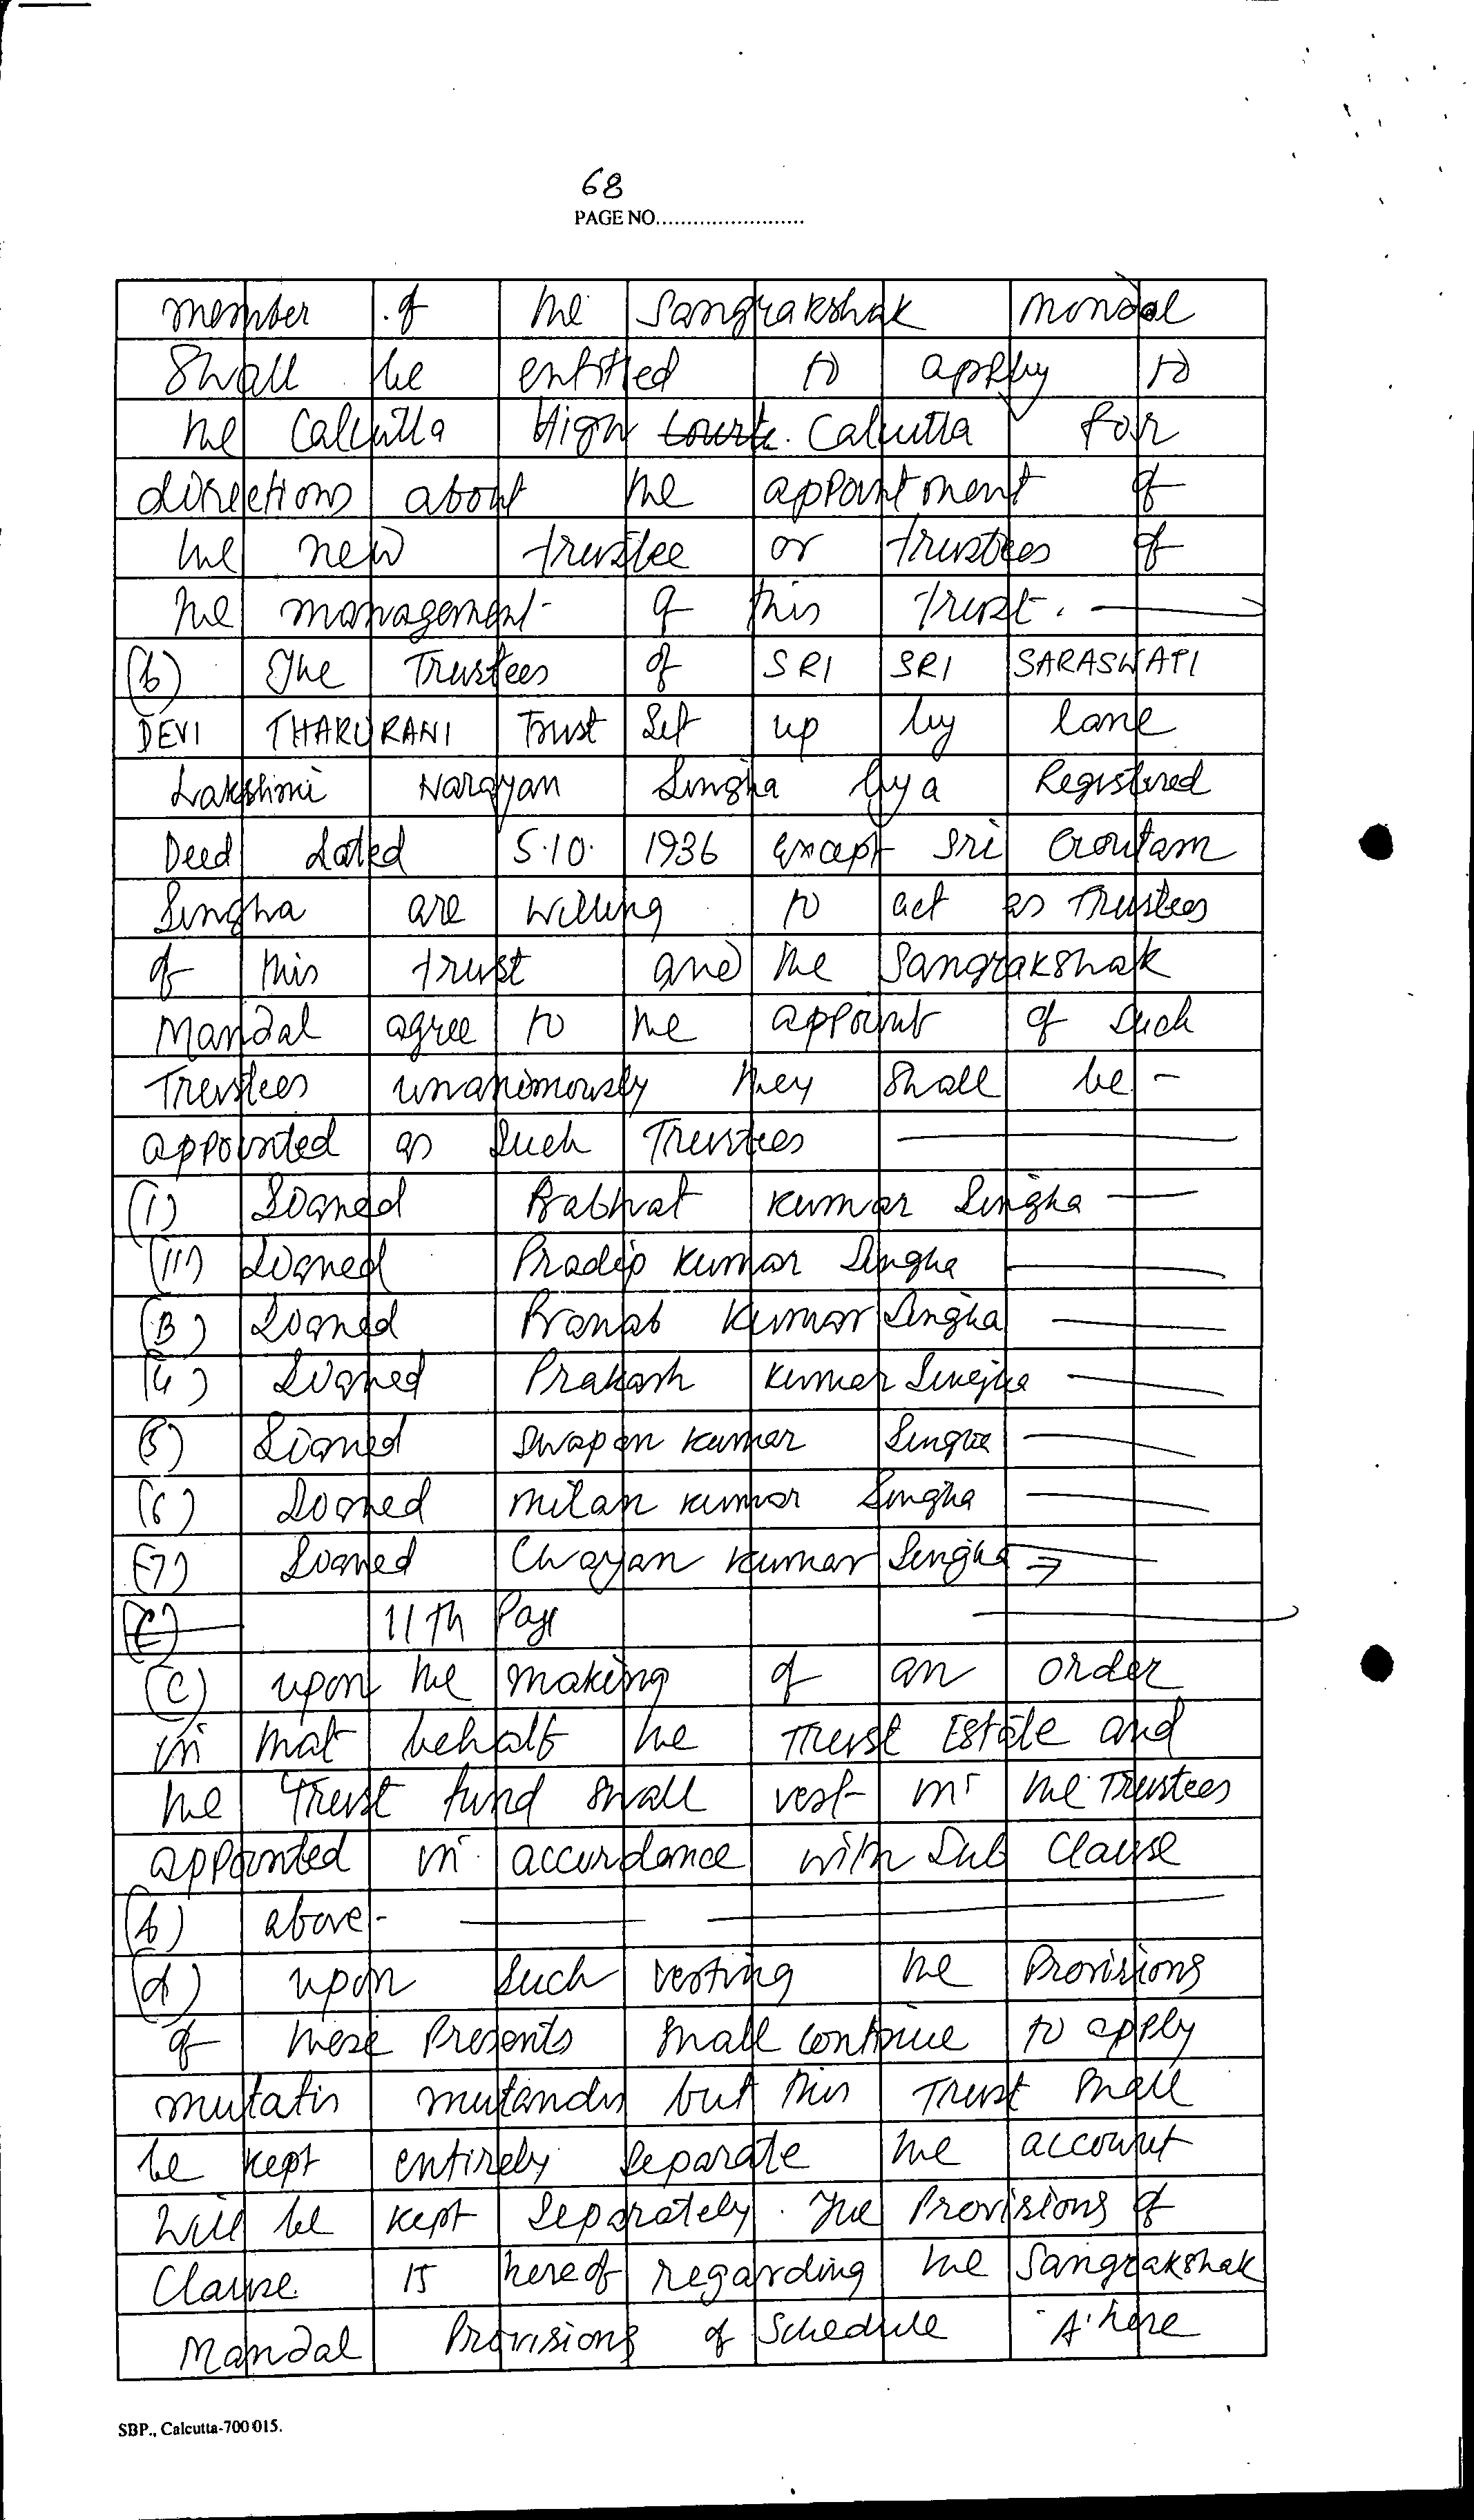 68
PAGE NO........................
member of the Sangrakshak Mondal
Shall be entitled to apply to
the Calcutta High Court. Calcutta for
directions about the appointment of
the new trustee or trustees of
the management of this trust.
(b) The Trustees of SRI SRI SARASWATI
DEVI THAKURANI Trust Set up by lane
Lakshmi Narayan Singha by a Registered
Deed dated 5.10. 1936 except Sri Goutam
Singha are willing to act as Trustees
of this trust and the Sangrakshak
Mandal agree to the appoint of such
Trustees unanimously they shall be -
appointed as such Trustees
(1) Signed Prabhat Kumar Singha
(11) Signed Pradip Kumar Singha
(3) Signed Pranab Kumar Singha
(4) Signed Prakash Kumar Singha
(5) Signed Swapan Kumar Singha
(6) Signed Milan Kumar Singha
(7) Signed Chayan Kumar Singha
(C) 11th Page
(C) upon the making of an order
in that behalf the Trust Estate and
the Trust fund shall vest in the Trustees
appointed in accordance with Sub Clause
(b) above -
(d) upon such vesting the Provisions
of these Presents shall continue to apply
mutatis mutandis but this Trust shall
be kept entirely separate the account
will be kept separately. The Provisions of
Clause 15 hereof regarding the Sangrakshak
Mandal Provisions of Schedule 'A' here
SBP., Calcutta-700 015.